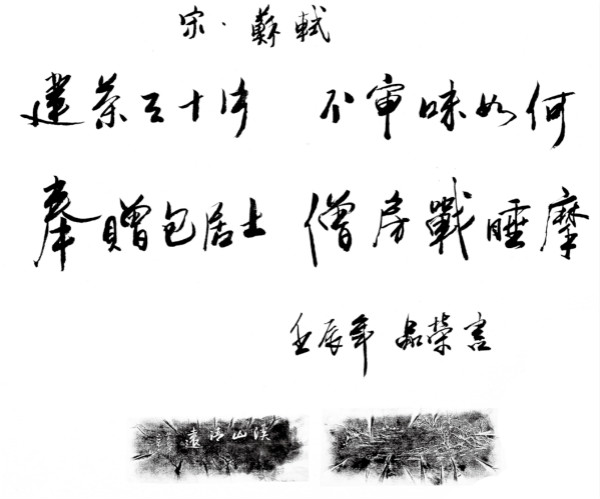 宋·蘇軾
建茶三十片 不审味如何
奉贈包居士 僧房戰睡摩
壬辰年 品榮
溪山清遠